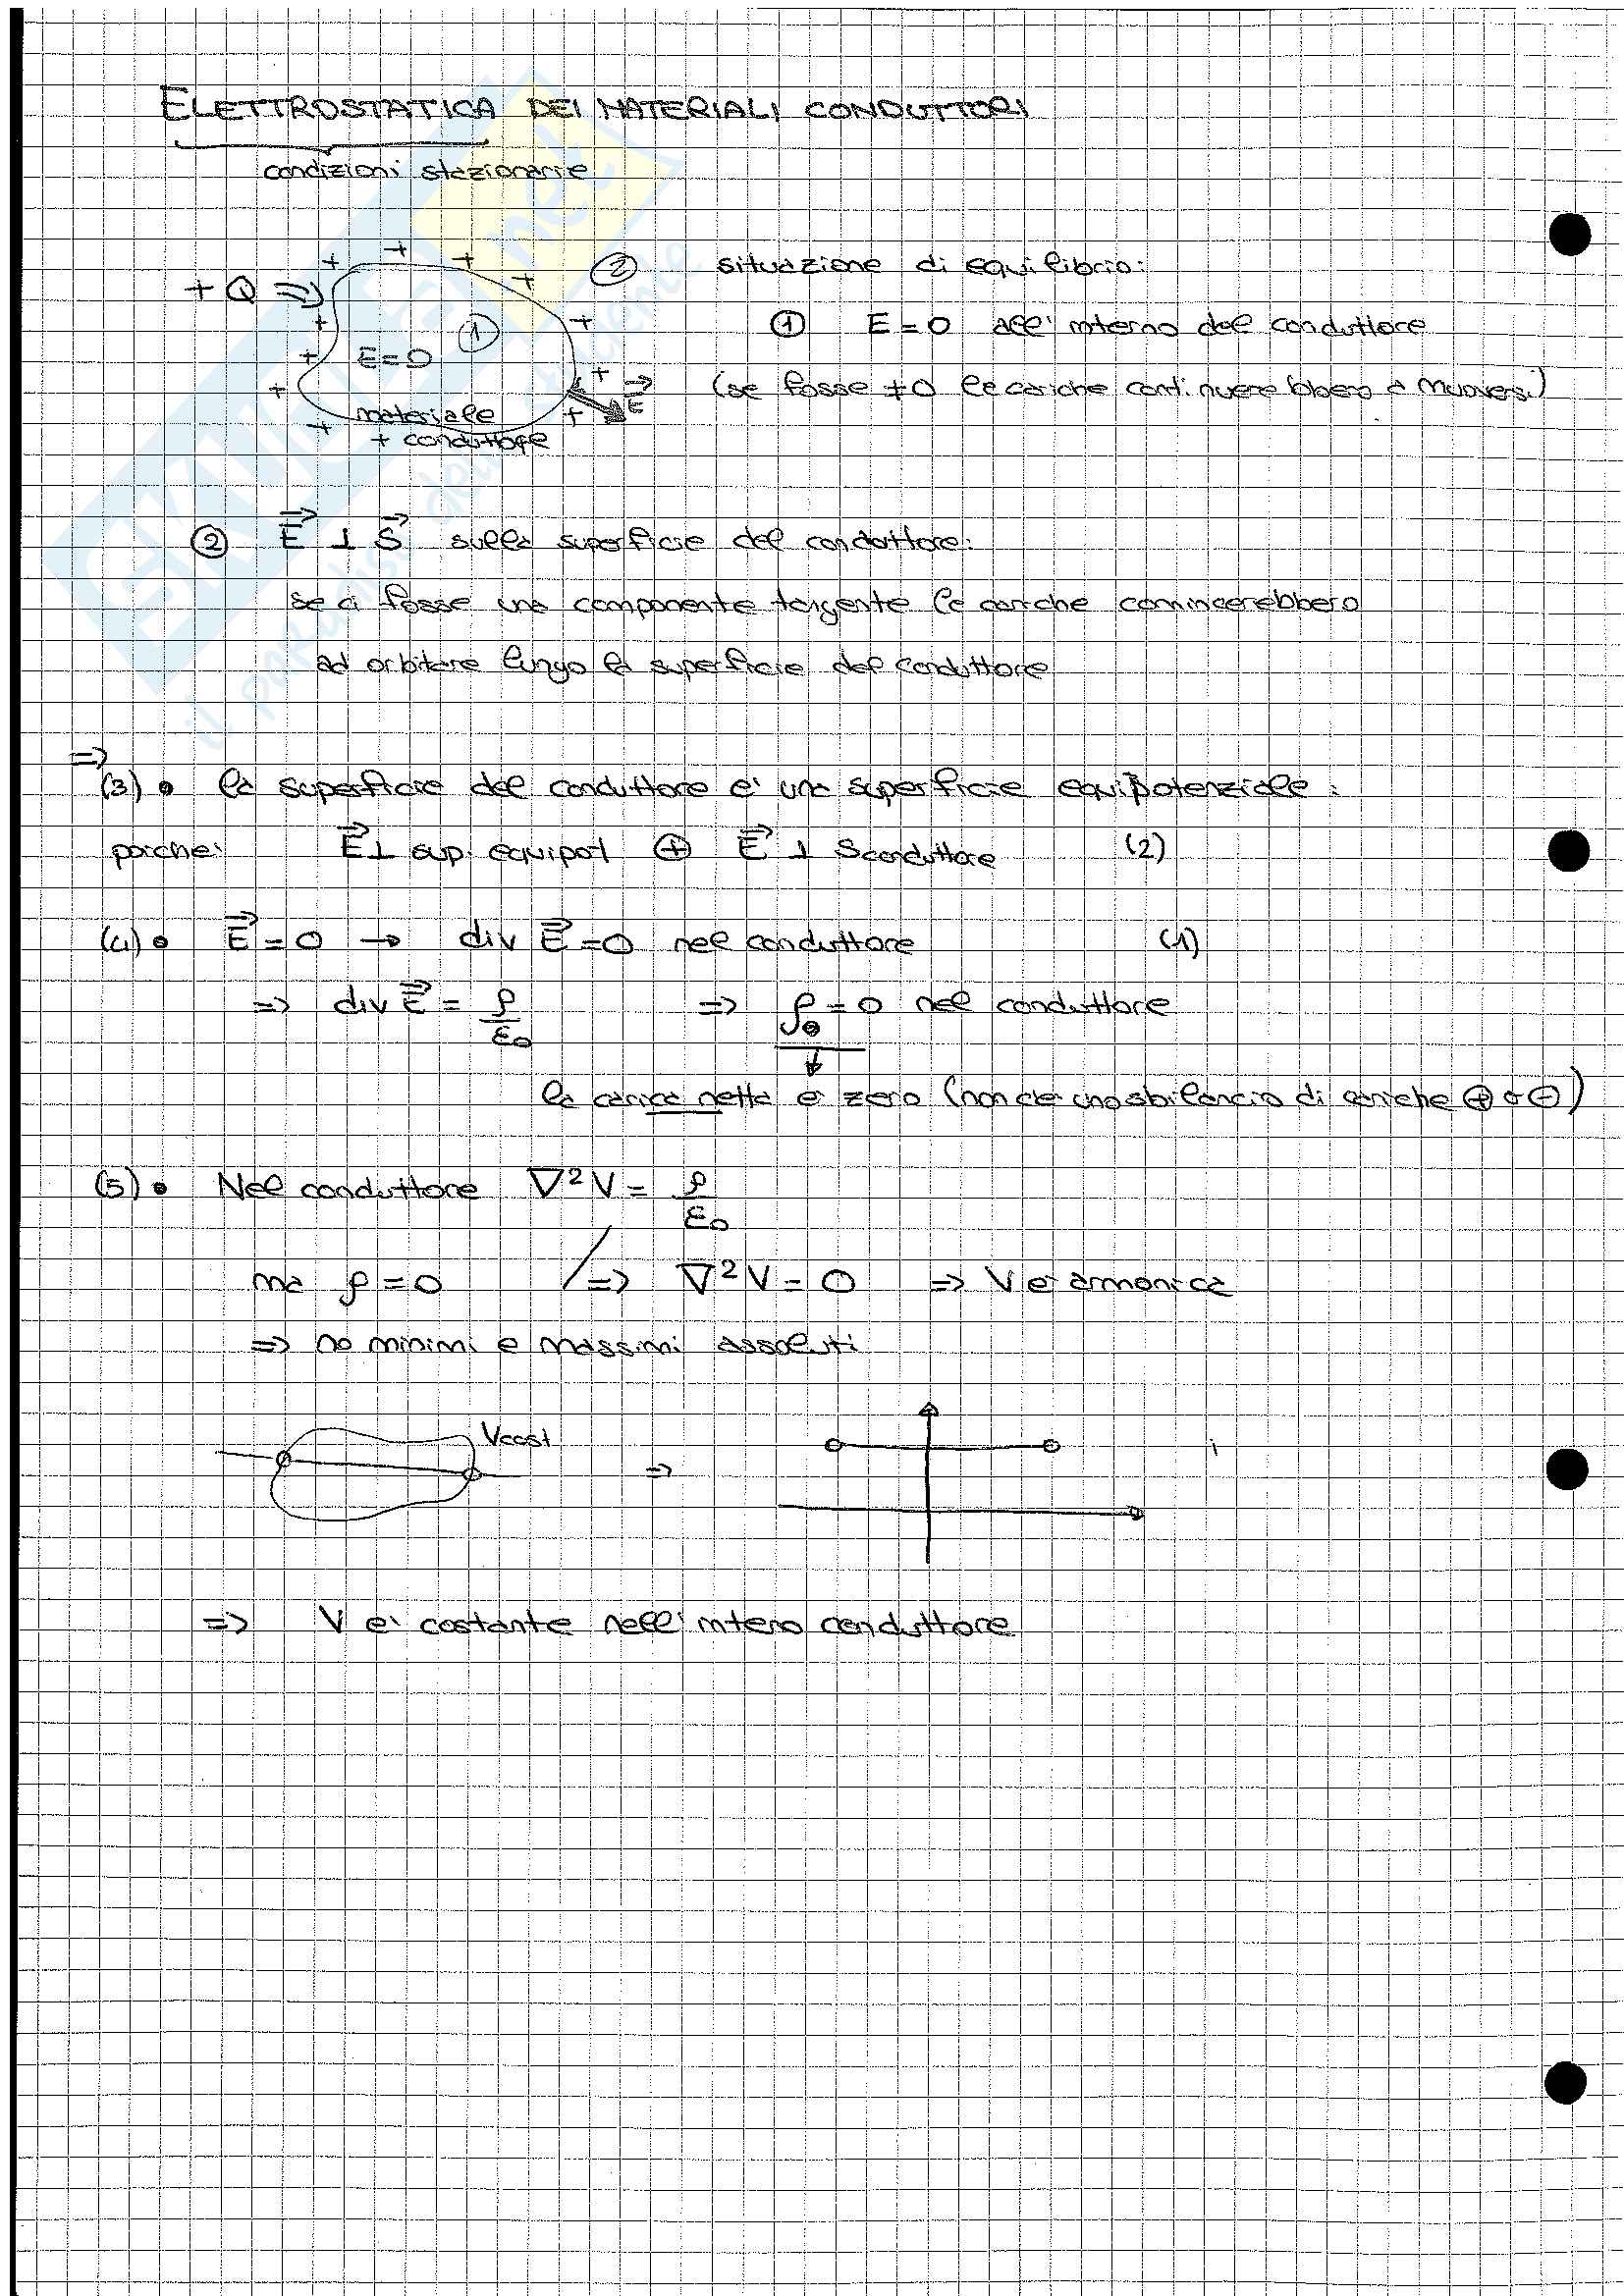 ELETTROSTATICA DEI MATERIALI CONDUTTORI
condizioni stazionarie
+ Q ⇒
+ + + + + + + + + + + + +
②
①
E=0
materiale
conduttore
E⃗
situazione di equilibrio:
① E = 0 all'interno del conduttore
(se fosse ≠0 le cariche continuerebbero a muoversi)
② E⃗ ⊥ S⃗ sulla superficie del conduttore:
se ci fosse una componente tangente le cariche comincerebbero
ad orbitare lungo la superficie del conduttore
⇒
(3) • la superficie del conduttore e' una superficie equipotenziale:
poiche' E⃗ ⊥ sup. equipot ⊕ E⃗ ⊥ Sconduttore (2)
(4) • E⃗ = 0 → div E⃗ = 0 nel conduttore (1)
⇒ div E⃗ = ρ/ε₀ ⇒ ρ = 0 nel conduttore
la carica netta e' zero (non c'e' uno sbilancio di cariche ⊕ o ⊖)
(5) • Nel conduttore ∇²V = ρ/ε₀
ma ρ = 0 ⇒ ∇²V = 0 ⇒ V e' armonica
⇒ no minimi e massimi assoluti
Vcost
⇒
⇒ V e' costante nell'intero conduttore
SKUOLA.net
il paradiso dello studente